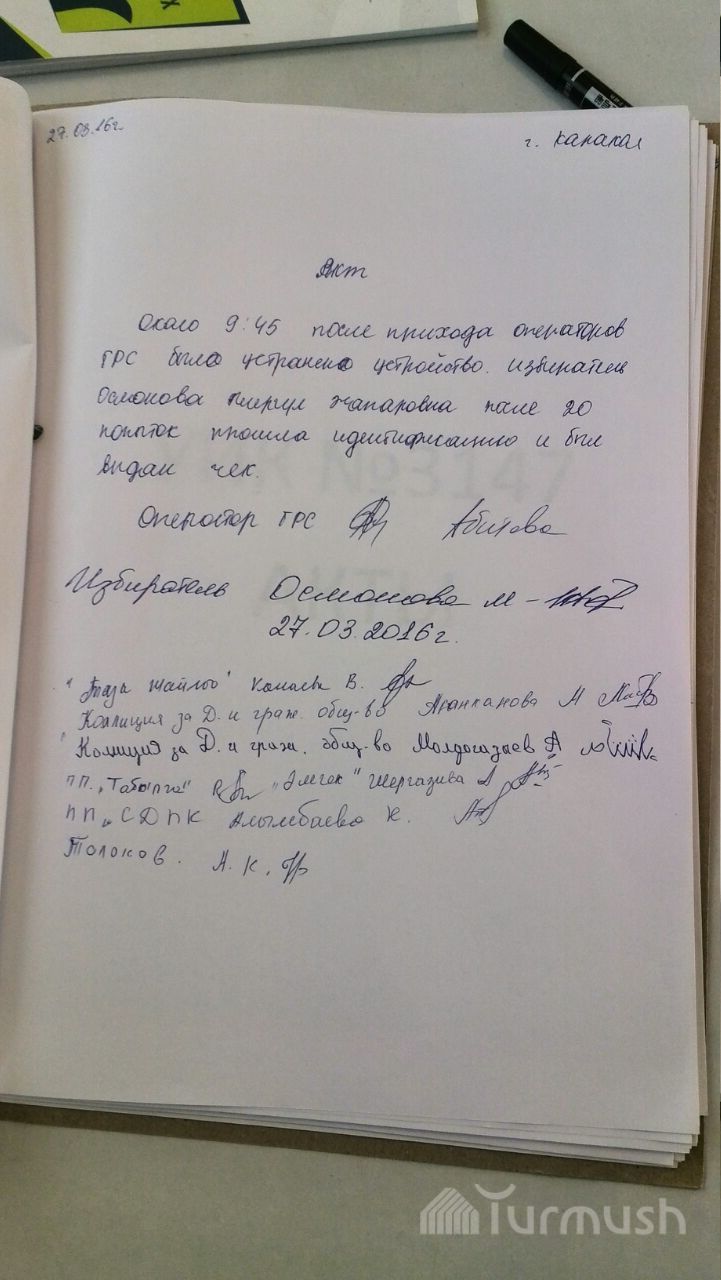 27.03.16г.
г. Каракол
Акт
Около 9:45 после прихода операторов
ГРС было устранено устройство. Избиратель
Осмонова Жапаровна после 20
попыток прошла идентификацию и был
выдан чек.
УИК №3147
АКТЫ
Оператор ГРС Абитова
Избиратель Осмонова М
27.03.2016г.
"Таза жайлоо" В.
Коалиция за Д. и граж. общ-во М
Коалиция за Д. и граж. общ-во Молдогазаев А
ПП. "Табылга" "Элгек" Шергазиева А
ПП "СДПК Алымбаева К.
Толоков. А. К.
Turmush